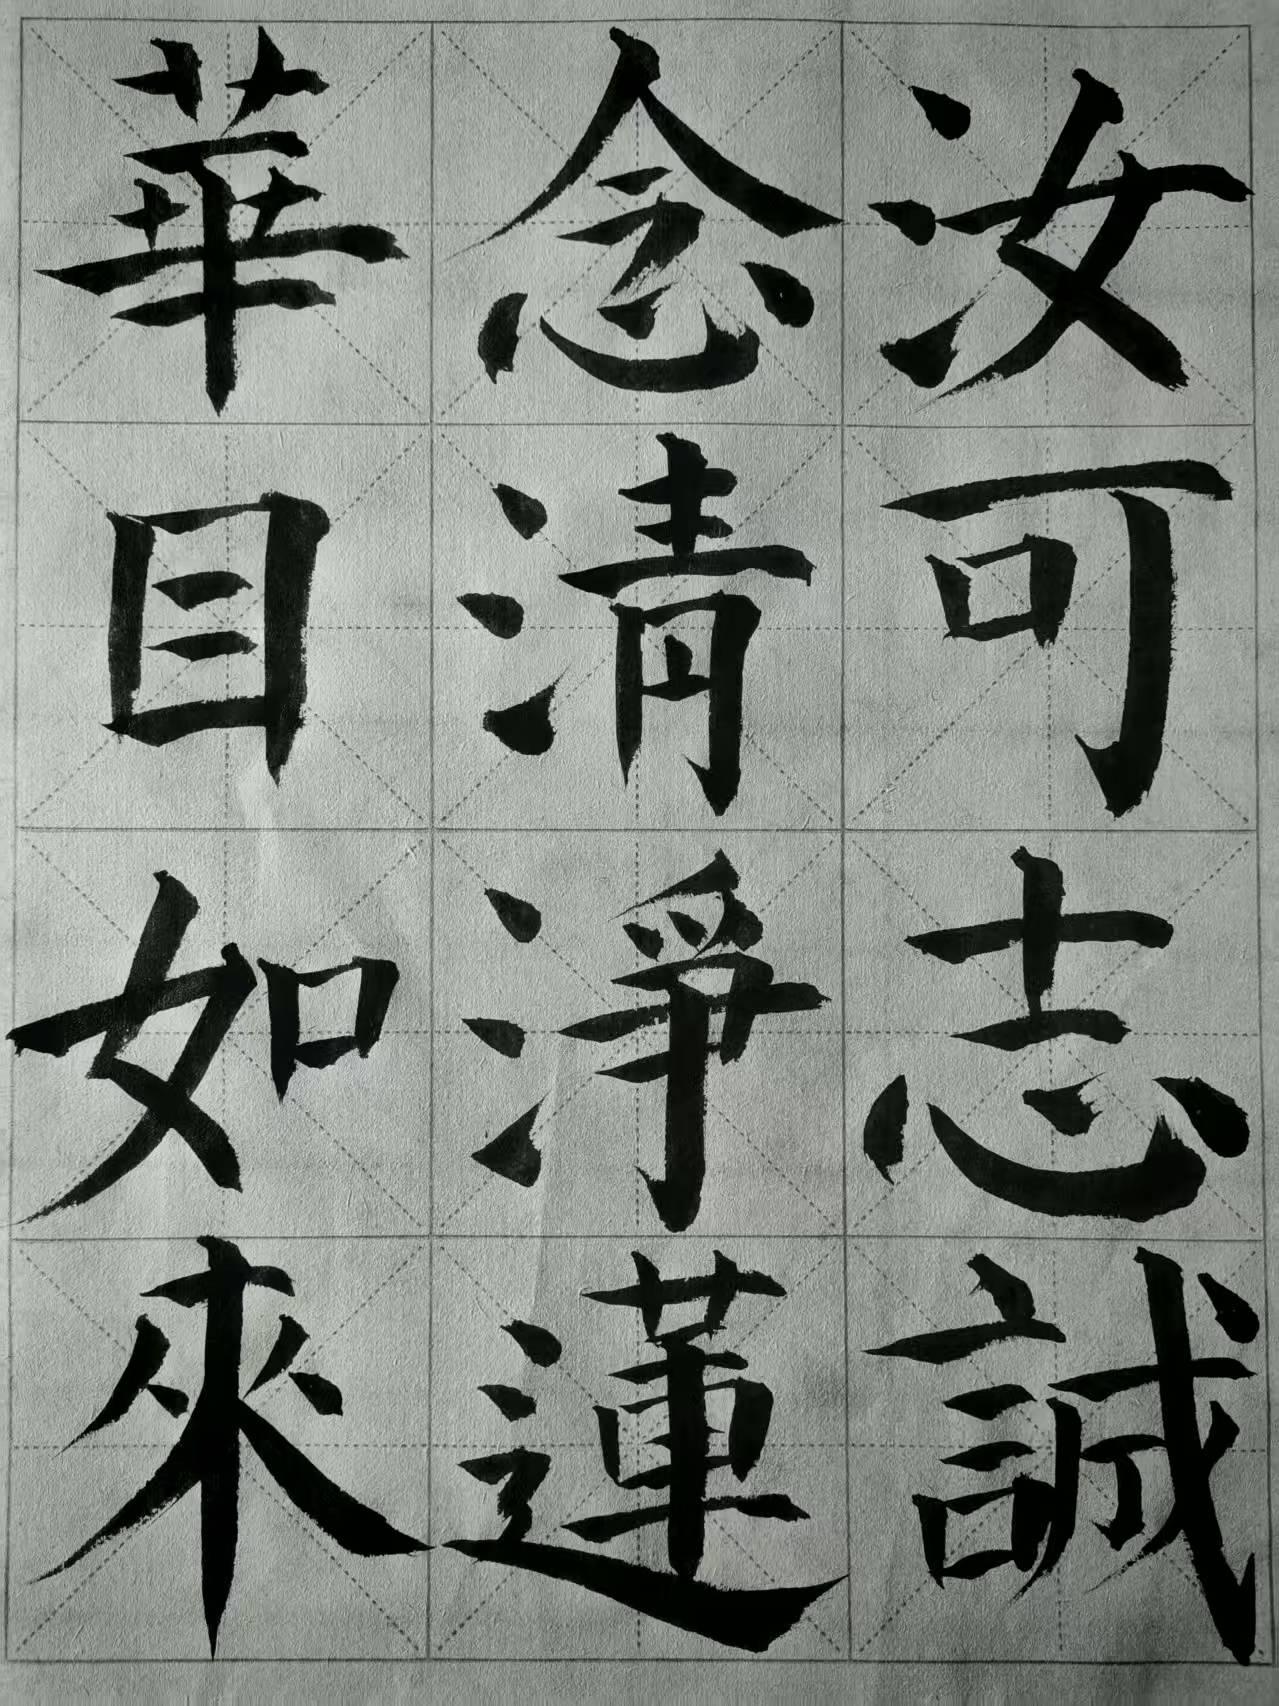 汝可志誠
念清淨蓮
華目如來